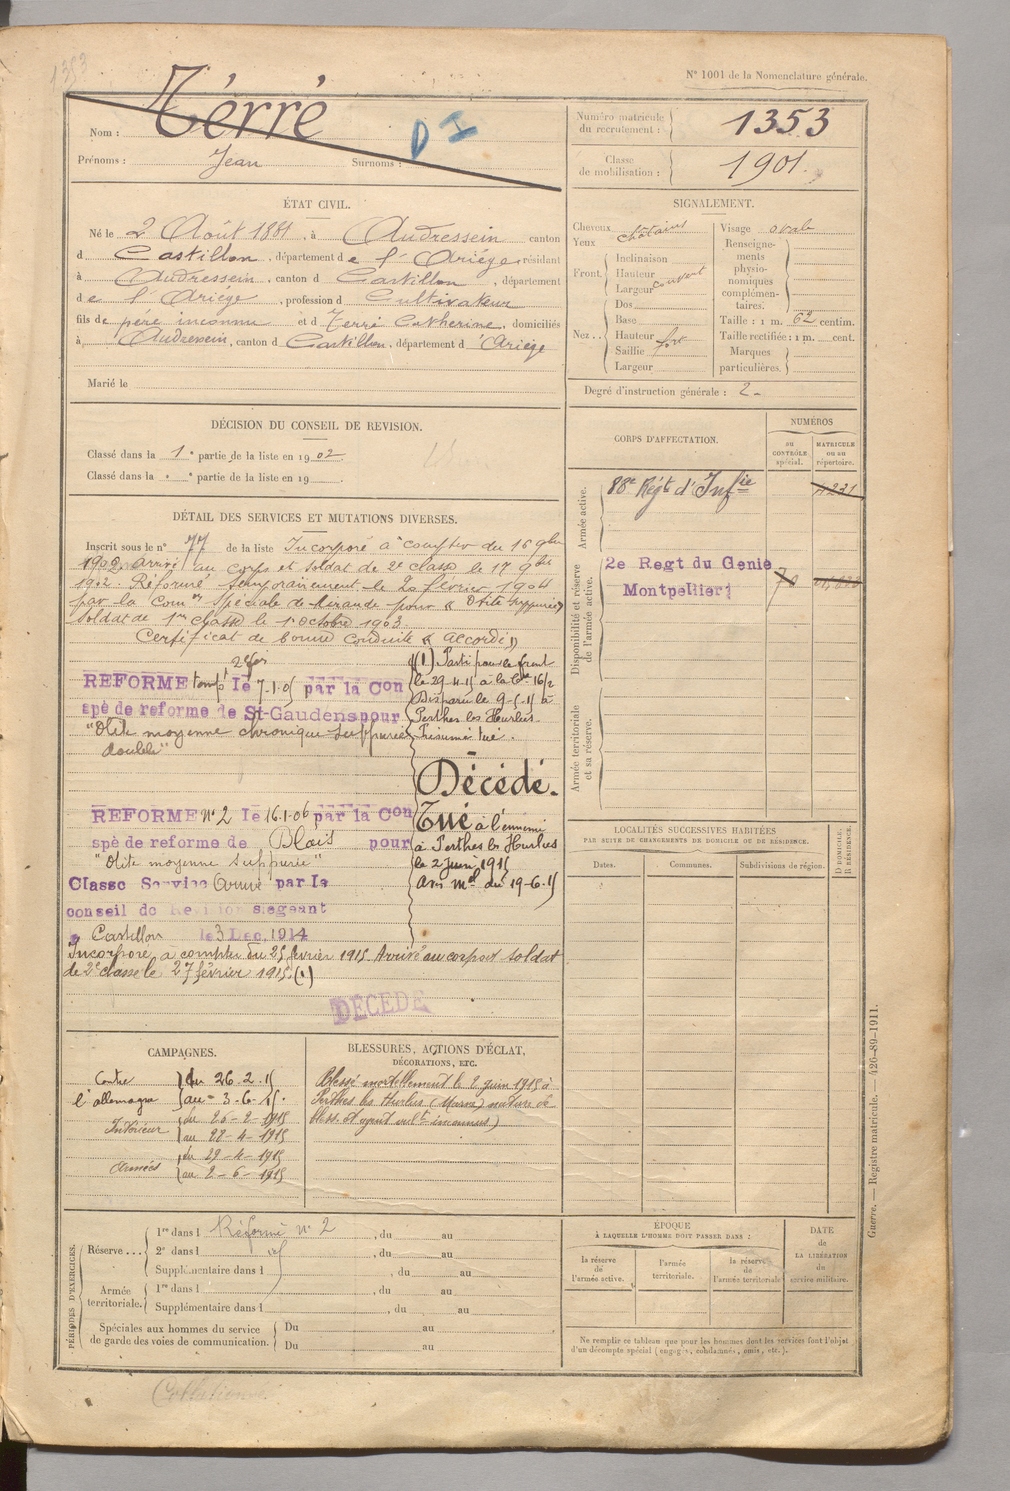 1353
N° 1001 de la Nomenclature générale.
Nom : Térré
Prénoms : Jean Surnoms :
D I
Numéro matricule du recrutement : 1353
Classe de mobilisation : 1901.
ÉTAT CIVIL.
Né le 2 Août 1881, à Audressein canton
d Castillon, département de l'Ariége, résidant
à Audressein, canton d Castillon, département
de l'Ariége, profession d Cultivateur
fils de père inconnu et d Terré Catherine, domiciliés
à Audressein, canton d Castillon, département d'Ariége
Marié le
SIGNALEMENT.
Cheveux châtains
Yeux
Front. Inclinaison
Hauteur
Largeur couvert
Nez.. Dos
Base
Hauteur
Saillie fort
Largeur
Visage ovale
Renseignements physionomiques complémentaires.
Taille : 1 m. 62 centim.
Taille rectifiée : 1 m. cent.
Marques particulières.
Degré d'instruction générale : 2.
DÉCISION DU CONSEIL DE REVISION.
Classé dans la 1e partie de la liste en 1902.
Classé dans la e partie de la liste en 19 .
CORPS D'AFFECTATION.
NUMÉROS
AU CONTRÔLE spécial.
MATRICULE ou au répertoire.
Armée active.
88e Regt d'Infie
4231
Disponibilité et réserve de l'armée active.
2e Regt du Genie
Montpellier
Armée territoriale et sa réserve.
DÉTAIL DES SERVICES ET MUTATIONS DIVERSES.
Inscrit sous le n° 77 de la liste Incorporé à compter du 16 9bre
1902. arrivé au corps et soldat de 2e classe le 17 9bre
1902. Réformé temporairement le 20 février 1904
par la Comon spéciale de Mirande pour « Otite suppurée »
soldat de 1re classe le 1er octobre 1903.
Certificat de bonne conduite « Accordé »
2e fois
REFORME tempt le 7.1.05 par la Con
spè de reforme de St-Gaudens pour
"Otite moyenne chronique suppurée
double"
REFORME n° 2 le 16.1.06 par la Con
spè de reforme de Blois pour
"Otite moyenne suppurée"
Classe Service Armé par le
conseil de Revision siegeant
a Castillon le 3 Dec. 1914
Incorporé à compter du 25 février 1915. Arrivé au corps et soldat
de 2e classe le 27 février 1915. (1)
(1) Parti pour le front
le 29-4-15 à la Cie 16/2
Disparu le 9-5-15 à
Perthes les Hurlus.
Présumé tué.
Décédé.
Tué à l'ennemi
à Perthes les Hurlus
le 2 juin 1915
Avis mel du 19-6-15
DECEDE
LOCALITÉS SUCCESSIVES HABITÉES
PAR SUITE DE CHANGEMENTS DE DOMICILE OU DE RÉSIDENCE.
Dates.
Communes.
Subdivisions de région.
D DOMICILE. R RÉSIDENCE.
CAMPAGNES.
Contre l'allemagne
du 26.2.15
au = 3-6-15.
Intérieur
du 26-2-1915
au 28-4-1915
Armées
du 29-4-1915
au 2-6-1915
BLESSURES, ACTIONS D'ÉCLAT,
DÉCORATIONS, ETC.
Blessé mortellement le 2 juin 1915 à
Perthes les Hurlus (Marne) nature de
bless. et agent vult inconnus)
PÉRIODES D'EXERCICES.
Réserve... 1re dans l Réformé n° 2, du au
2e dans l , du au
Supplémentaire dans l , du au
Armée territoriale. 1re dans l , du au
Supplémentaire dans l , du au
Spéciales aux hommes du service
de garde des voies de communication. Du au
Du au
ÉPOQUE
À LAQUELLE L'HOMME DOIT PASSER DANS :
la réserve de l'armée active.
l'armée territoriale.
la réserve de l'armée territoriale
DATE de LA LIBÉRATION du service militaire.
Ne remplir ce tableau que pour les hommes dont les services font l'objet
d'un décompte spécial (engagés, condamnés, omis, etc.).
Guerre. — Registre matricule. — 426-89-1911.
Collationné